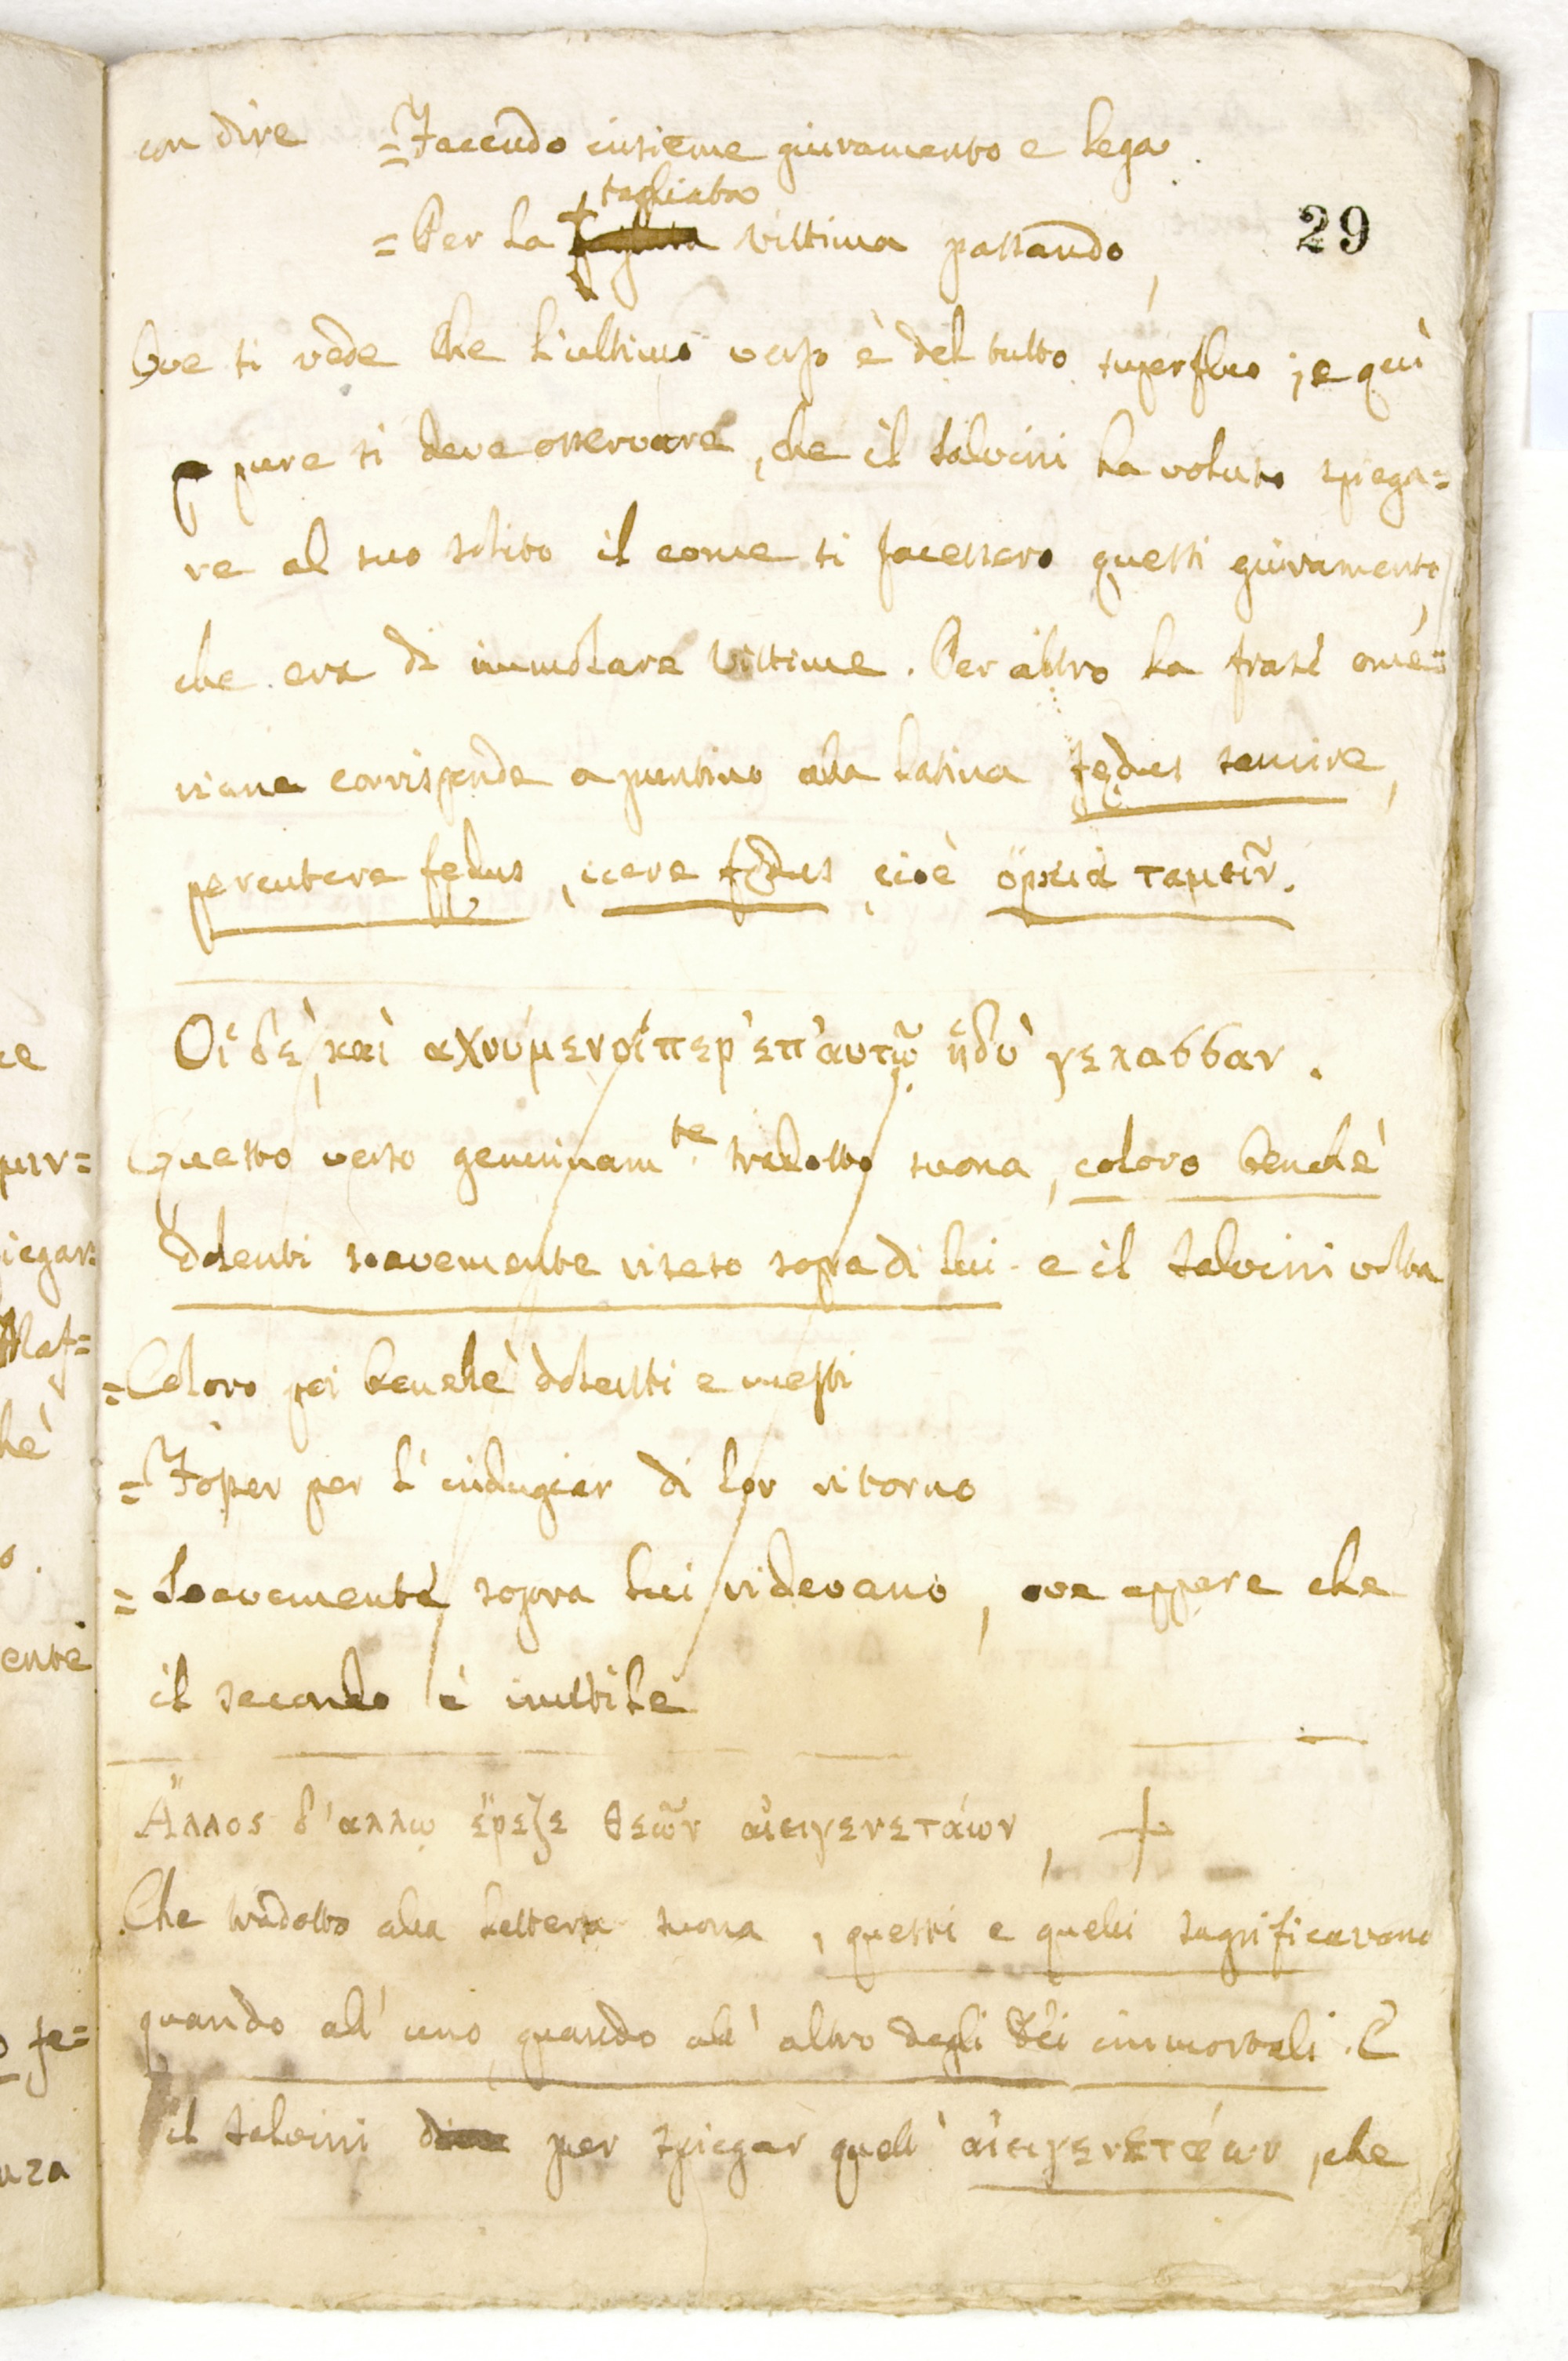 con dire =Facendo insieme giuramento e lega.
tagliata
=Per la vittima passando,
29
Ove si vede che l'ultimo verso è del tutto superfluo; e quì
pure si deve osservare, che il Salvini ha voluto spiega=
re al suo solito il come si facessero questi giuramento,
che era di immolare vittime. Per altro la frase ome=
riana corrisponde a puntino alla latina fędus sancire,
percutere fędus, icere fędus, cioè ὅρκια ταμειῖν.
Οἱ δὲ, καὶ αχνύμενοίπερ' ἐπ' ἀυτῶ ἡδὺ γελασσαν.
Questo verso genuinam.te tradotto suona, coloro benchè
dolenti soavemente riseso sopra di lui. e il Salvini volta
=Coloro poi benchè dolenti e mesti
=Foser per l'indugiar di lor ritorno
=Soavemente sopra lui ridevano, ove appare che
il secondo è inultile
Ἄλλος δ'αλλω ἔρεζε θεῶν αἰειγενετάων, +
Che tradotto alla lettera suona, questi e quelli sagrificavano
quando all'uno, quando all'altro degli Dei immortali. E
il Salvini per spiegar quell' αἰειγενετάων, che